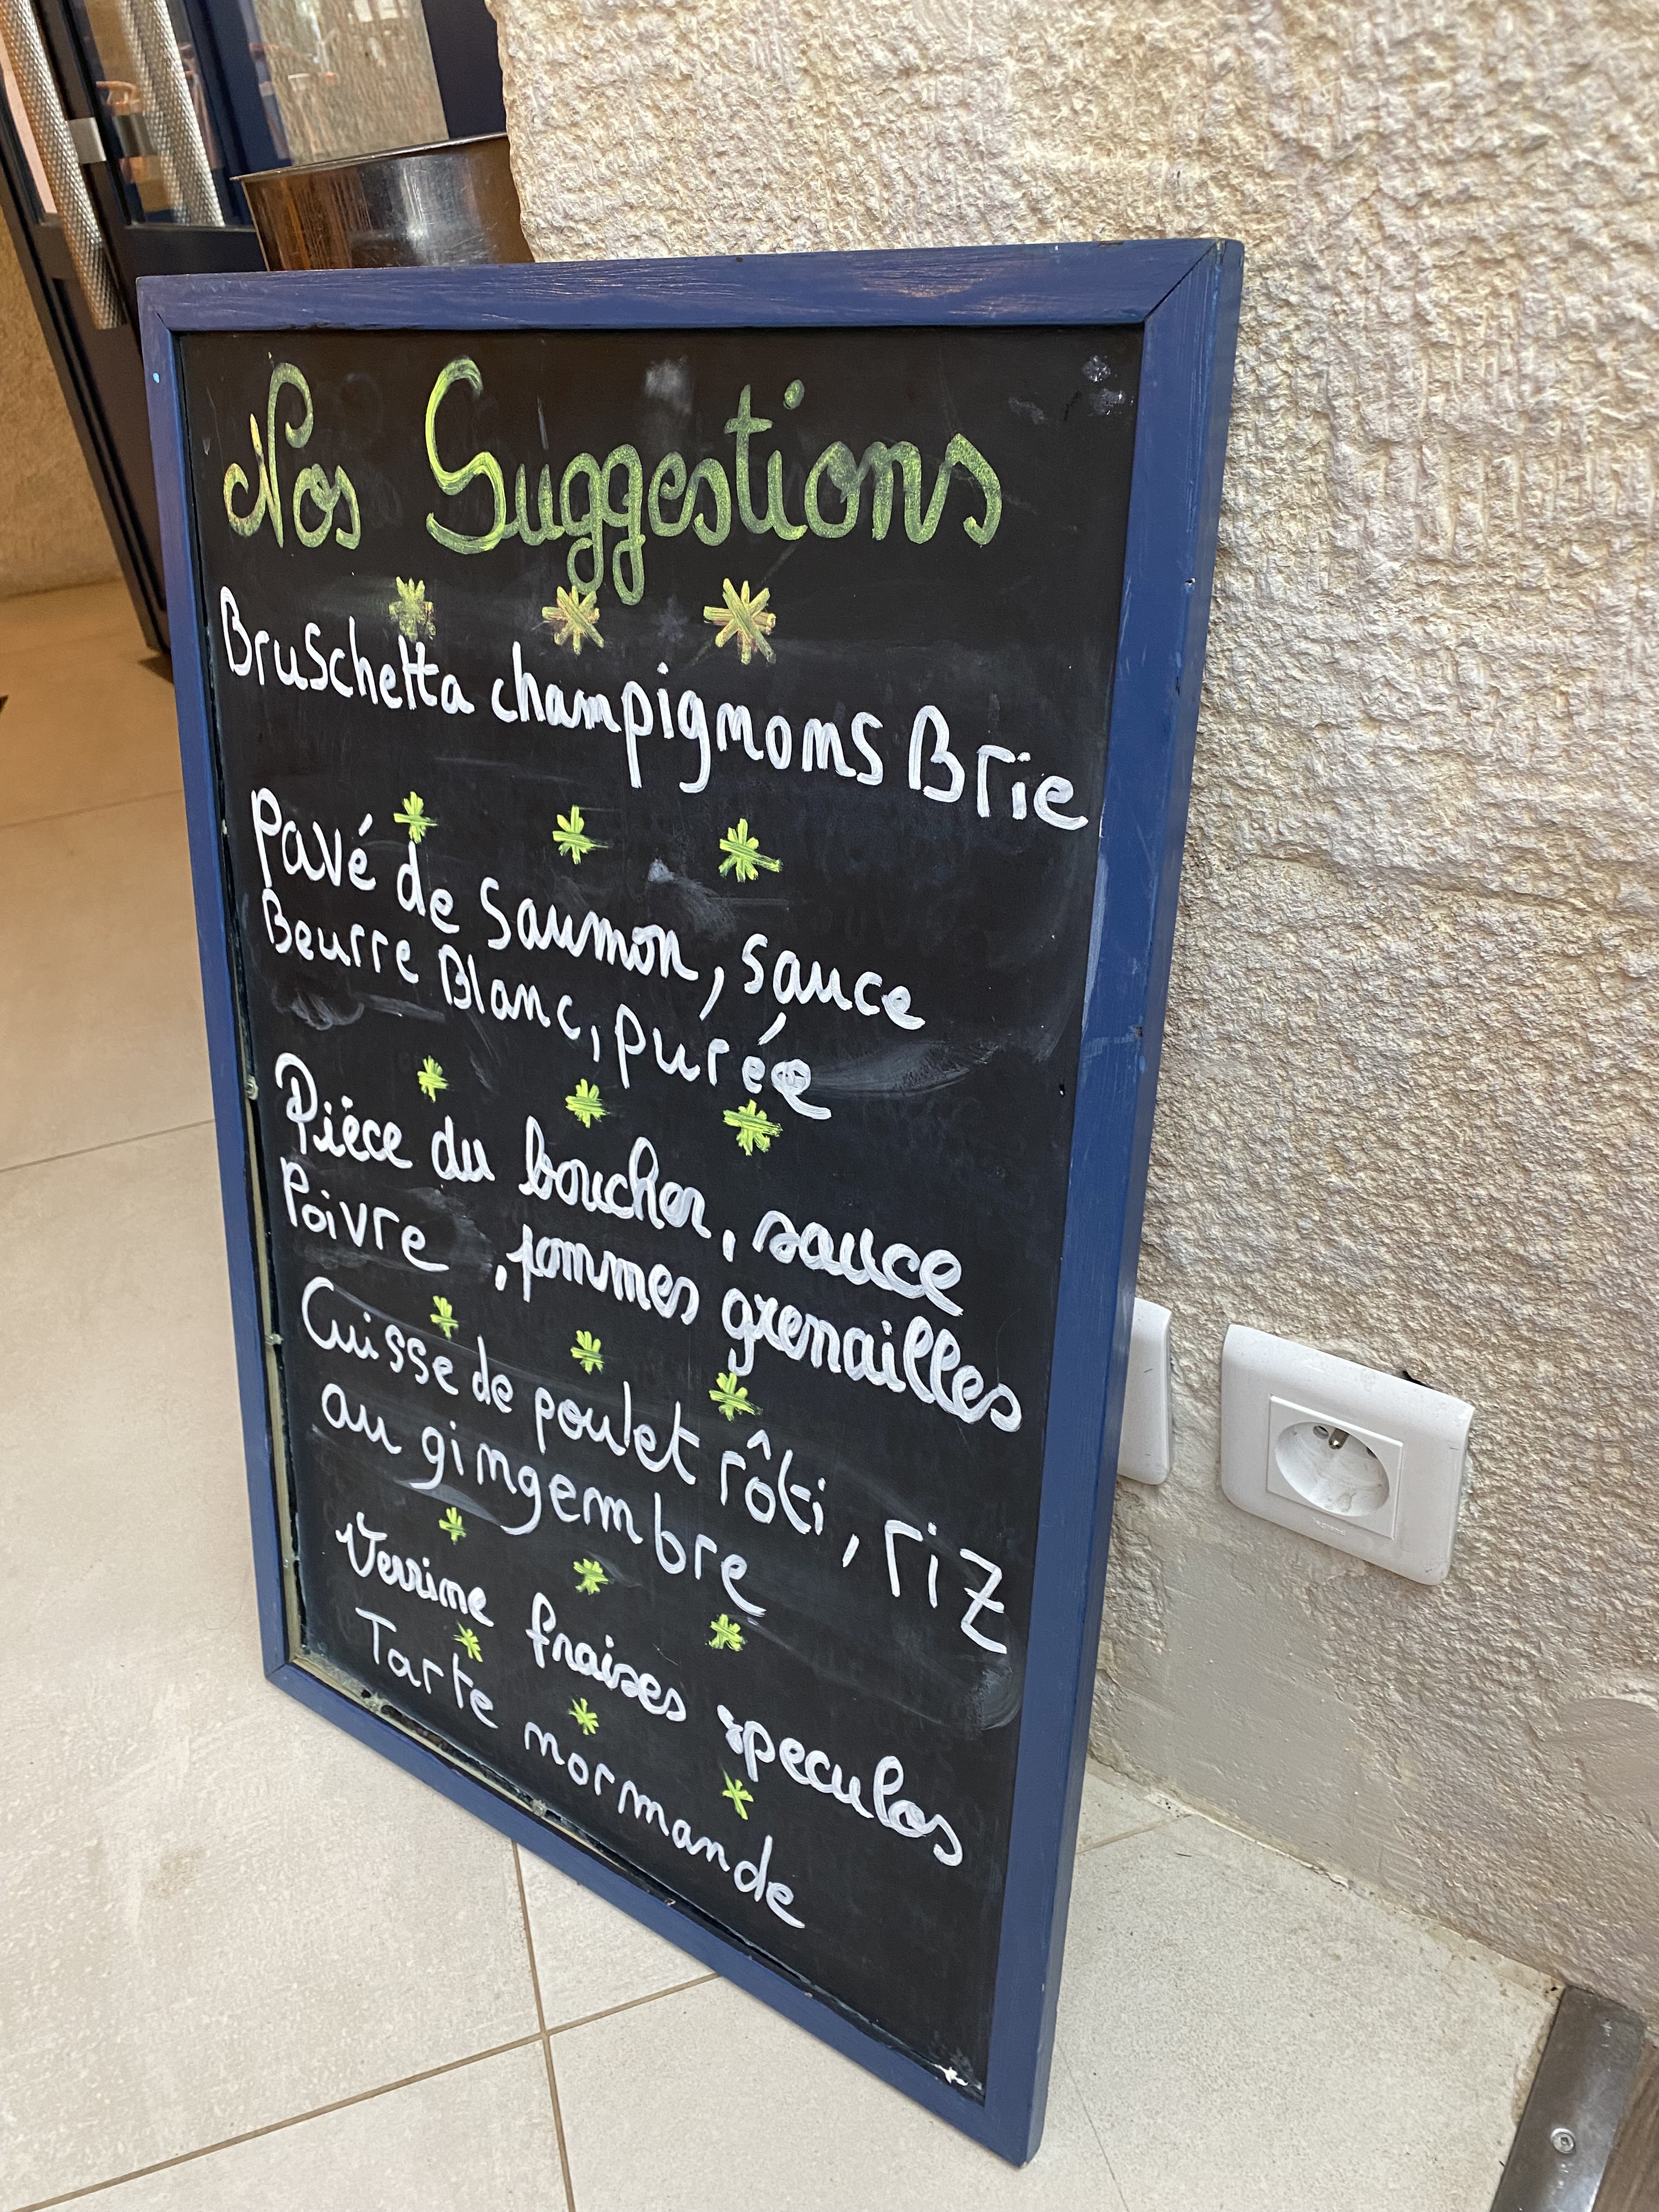 Nos Suggestions
Bruschetta champignons Brie
Pavé de Saumon, sauce
Beurre Blanc, purée
Pièce du boucher, sauce
Poivre , pommes grenailles
Cuisse de poulet rôti, riz
au gingembre
Verrine fraises speculos
Tarte normande